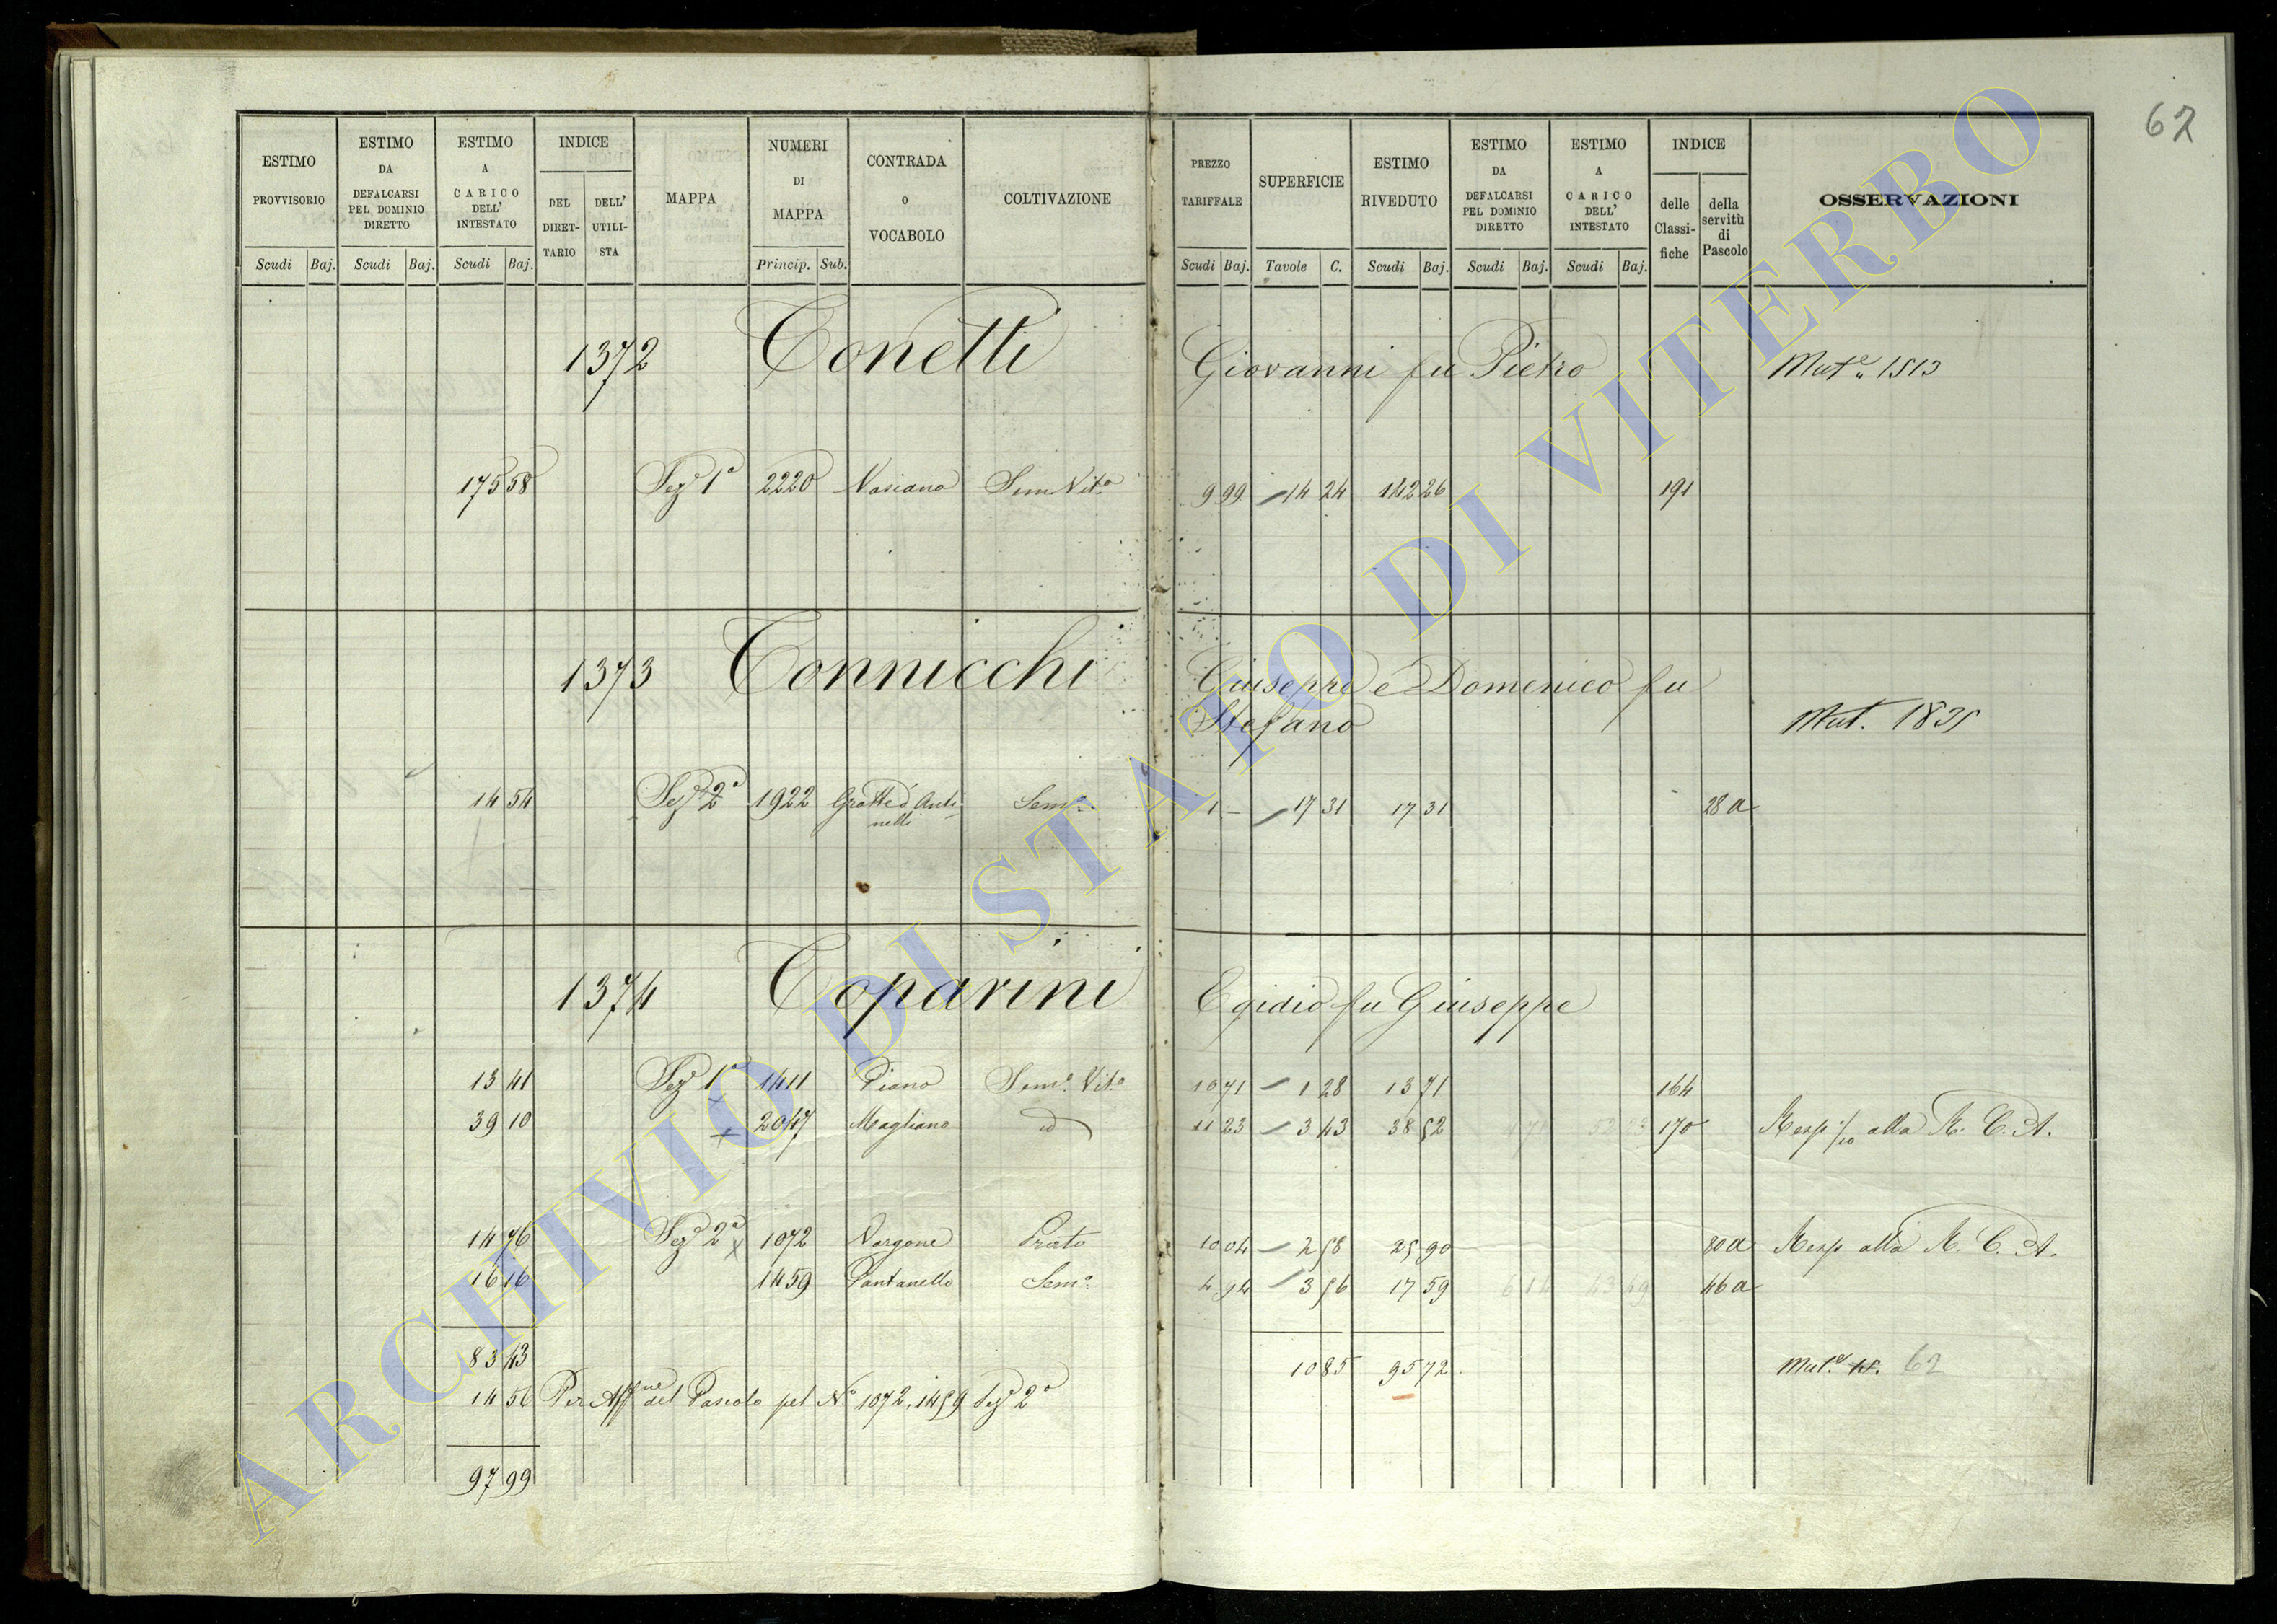 62
ESTIMO PROVVISORIO
ESTIMO DA DEFALCARSI PEL DOMINIO DIRETTO
ESTIMO A CARICO DELL' INTESTATO
INDICE
DEL DIRET-TARIO
DELL' UTILI-STA
MAPPA
NUMERI DI MAPPA
CONTRADA O VOCABOLO
COLTIVAZIONE
PREZZO TARIFFALE
SUPERFICIE
ESTIMO RIVEDUTO
ESTIMO DA DEFALCARSI PEL DOMINIO DIRETTO
ESTIMO A CARICO DELL' INTESTATO
INDICE
delle Classi-fiche
della servitù di Pascolo
OSSERVAZIONI
Scudi Baj. Scudi Baj. Scudi Baj. Princip. Sub. Scudi Baj. Tavole C. Scudi Baj. Scudi Baj. Scudi Baj.
1372 Tonetti Giovanni fu Pietro Mut.e 1513
175 58 Sez.e 1a 2220 Nasiano Sem Vit.o 9 99 14 24 142 26 191
1373 Tonnicchi Giuseppe e Domenico fu
Stefano
Mut. 1835
14 54 Sez.e 2a 1922 Grotte d' Anti-
nello
Sem.o 1 — 17 31 17 31 28 a
1374 Toparini Egidio fu Giuseppe
13 41 Sez.e 1a 1411 Piano Sem.o Vit.o 10 71 1 28 13 71 164
39 10 2047 Magliano id 11 23 3 43 38 52 170 Resp 1/10 alla R. C. A.
14 76 Sez.e 2a 1072 Vargone Prato 10 04 2 58 25 90 80 a Resp alla R. C. A.
16 16 1459 Pantanello Sem.o 4 94 3 56 17 59 46 a
83 43 10 85 95 72 Mut.e 62
14 56 Per Aff.ne del Pascolo pel No 1072, 1459 Sez.e 2a
97 99
ARCHIVIO DI STATO DI VITERBO